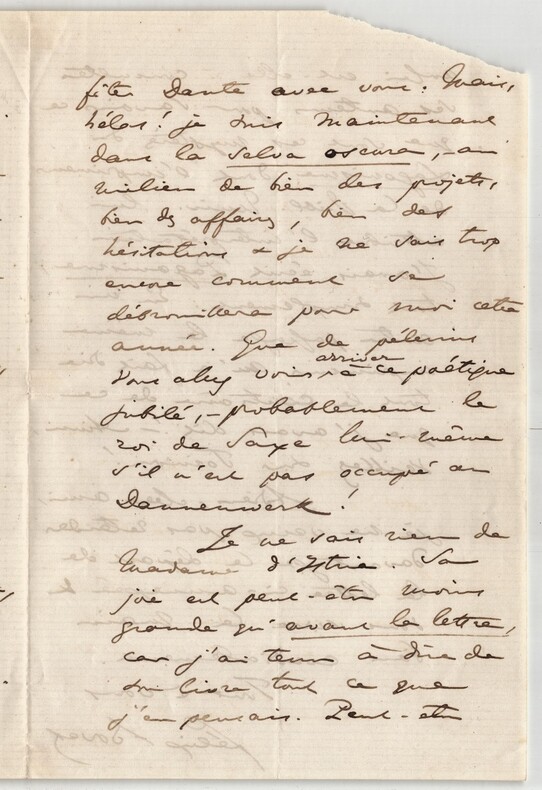 fêter Dante avec vous. Mais,
hélas! je suis maintenant
dans la selva oscura, - au
milieu de bien des projets,
bien ds affaires, bien des
hésitations & je ne sais trop
encore comment se
débrouillera pour moi cette
année. Que de pélerins
vous allez voir arriver à ce poétique
jubilé, - probablement le
roi de Saxe lui-même
s'il n'est pas occupé au
Dannenwerk!
Je ne sais rien de
Madame d'Istria Sa
joie est peut-être moins
grande qu'avant la lettre,
car j'ai tenu à dire de
son livre tout ce que
j'en pensais. Peut-etre